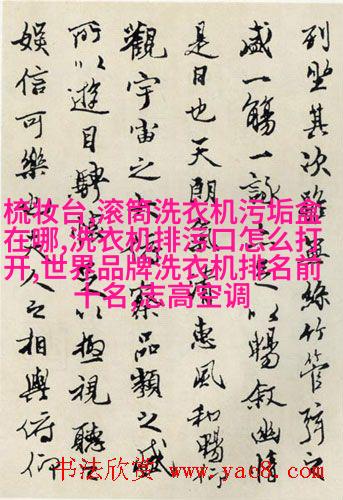 列坐其次雖無絲竹管弦之
盛一觴一詠亦足以暢敘幽情
是日也天朗氣清惠風和暢仰
觀宇宙之大俯察品類之盛
所以遊目騁懷足以極視聽之
娛信可樂也夫人之相與俯仰
梳妆台,滚筒洗衣机污垢盒
在哪,洗衣机排污口怎么打
开,世界品牌洗衣机排名前
十名,志高空调
书法欣赏 www.yac8.com